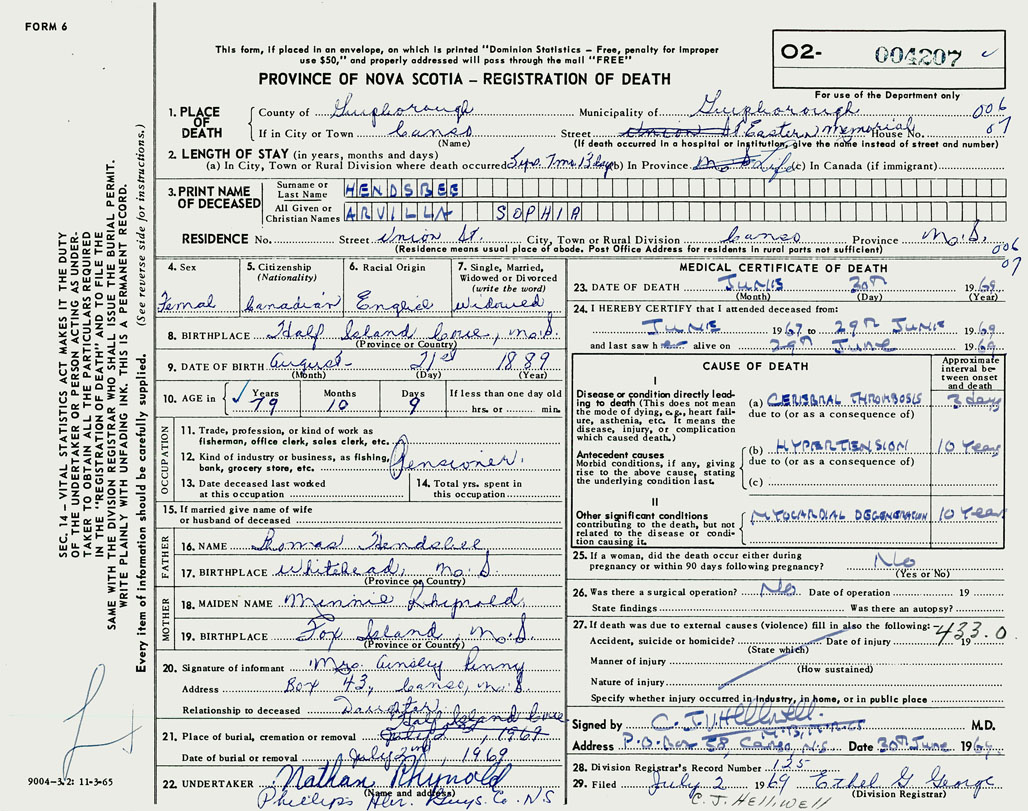 FORM 6
This form, if placed in an envelope, on which is printed "Dominion Statistics – Free, penalty for improper
use $50," and properly addressed will pass through the mail "FREE"
PROVINCE OF NOVA SCOTIA – REGISTRATION OF DEATH
O2- 004207
For use of the Department only
1. PLACE OF DEATH
County of Guysborough Municipality of Guysborough 006
If in City or Town Canso Street Union St Eastern Memorial House No. 07
(Name) (If death occurred in a hospital or institution, give the name instead of street and number)
2. LENGTH OF STAY (in years, months and days)
(a) In City, Town or Rural Division where death occurred 5 yrs. 7 mo 13 days (b) In Province Life (c) In Canada (if immigrant)
3. PRINT NAME OF DECEASED
Surname or Last Name HENDSBEE
All Given or Christian Names ARVILLA SOPHIA
RESIDENCE No. Street Union St. City, Town or Rural Division Canso Province N.S.
(Residence means usual place of abode. Post Office Address for residents in rural parts not sufficient)
006
07
4. Sex Femal
5. Citizenship (Nationality) Canadian
6. Racial Origin English
7. Single, Married, Widowed or Divorced (write the word) Widowed
8. BIRTHPLACE Half Island Cove, N.S.
(Province or Country)
9. DATE OF BIRTH August 21st 1889
(Month) (Day) (Year)
10. AGE in Years 79 Months 10 Days 9 If less than one day old hrs. or min.
OCCUPATION
11. Trade, profession or kind of work as fisherman, office clerk, sales clerk, etc.
12. Kind of industry or business, as fishing, bank, grocery store, etc. Pensioner.
13. Date deceased last worked at this occupation
14. Total yrs. spent in this occupation
15. If married give name of wife or husband of deceased
FATHER
16. NAME Thomas Hendsbee
17. BIRTHPLACE Whitehead, N.S.
(Province or Country)
MOTHER
18. MAIDEN NAME Minnie Rhynold
19. BIRTHPLACE Fox Island, N.S.
(Province or Country)
20. Signature of informant Mrs. Ainsley Penny
Address Box 43, Canso, N.S.
Relationship to deceased Daughter
Half Island Cove
21. Place of burial, cremation or removal July 2, 1969
Date of burial or removal July 2nd, 1969
22. UNDERTAKER Nathan Rhynold
(Name and address)
Phillips Hbr. Guys. Co. N.S
MEDICAL CERTIFICATE OF DEATH
23. DATE OF DEATH JUNE 30th 1969
(Month) (Day) (Year)
24. I HEREBY CERTIFY that I attended deceased from:
JUNE 1967 to 29th JUNE 1969
and last saw her alive on 29th June 1969
CAUSE OF DEATH
Approximate interval between onset and death
I
Disease or condition directly leading to death (This does not mean the mode of dying, e.g., heart failure, asthenia, etc. it means the disease, injury, or complication which caused death.)
(a) CEREBRAL THROMBOSIS 3 days
due to (or as a consequence of)
Antecedent causes
Morbid conditions, if any, giving rise to the above cause, stating the underlying condition last.
(b) HYPERTENSION 10 Years
due to (or as a consequence of)
(c)
II
Other significant conditions contributing to the death, but not related to the disease or condition causing it.
MYOCARDIAL DEGENERATION 10 Years
25. If a woman, did the death occur either during pregnancy or within 90 days following pregnancy? No
(Yes or No)
26. Was there a surgical operation? No Date of operation 19
State findings Was there an autopsy?
27. If death was due to external causes (violence) fill in also the following:
433.0
Accident, suicide or homicide? Date of injury 19
(State which)
Manner of injury
(How sustained)
Nature of injury
Specify whether injury occurred in industry, in home, or in public place
Signed by C. J. Helliwell M.D.
Address P.O. Box 58, Canso, N.S. Date 30th June 1969
28. Division Registrar's Record Number 135
29. Filed July 2 1969 Ethel G George
(Division Registrar)
C. J. HELLIWELL
SEC. 14 – VITAL STATISTICS ACT MAKES IT THE DUTY
OF THE UNDERTAKER OR PERSON ACTING AS UNDER-
TAKER TO OBTAIN ALL THE PARTICULARS REQUIRED
IN THE "REGISTRATION OF DEATH" AND TO FILE THE
SAME WITH THE DIVISION REGISTRAR WHO SHALL ISSUE THE BURIAL PERMIT.
WRITE PLAINLY WITH UNFADING INK. THIS IS A PERMANENT RECORD.
Every item of information should be carefully supplied. (See reverse side for instructions.)
9004-3.2: 11-3-65